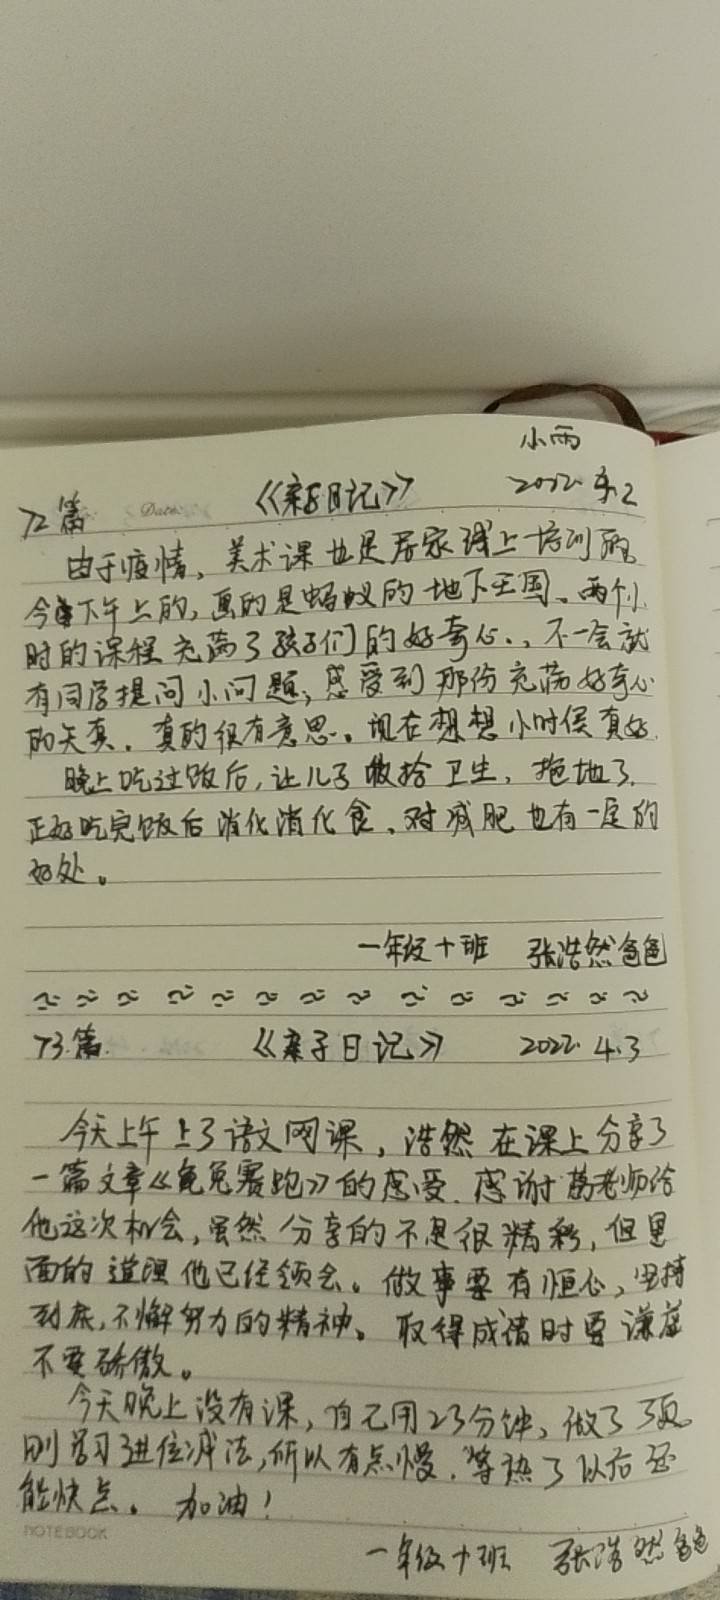 小雨
72篇 Date: 《亲子日记》 2022.4.2
由于疫情，美术课也是居家线上培训
今下午上的，画的是蚂蚁的地下王国。两个小
时的课程充满了孩子们的好奇心.，不一会就
有同学提问小问题，感受到那份充满好奇心
的天真。真的很有意思。现在想想小时侯真好.
晚上吃过饭后，让儿子收拾卫生，拖地了.
正好吃完饭后消化消化食、对减肥也有一定的
好处。
一年级十班 张浩然爸爸
73.篇. 《亲子日记》 2022.4.3
今天上午上了语文网课，浩然在课上分享了
一篇文章《龟兔赛跑》的感受.感谢葛老师给
他这次机会，虽然分享的不是很精彩，但里
面的道理他已经领会。做事要有恒心，坚持
到底，不懈努力的精神。取得成绩时要谦虚
不要骄傲。
今天晚上没有课，自己用23分钟，做了3页.
刚学习了进位减法，所以有点慢.等熟了以后还
能快点。加油！
NOTEBOOK
一年级十班 张浩然爸爸